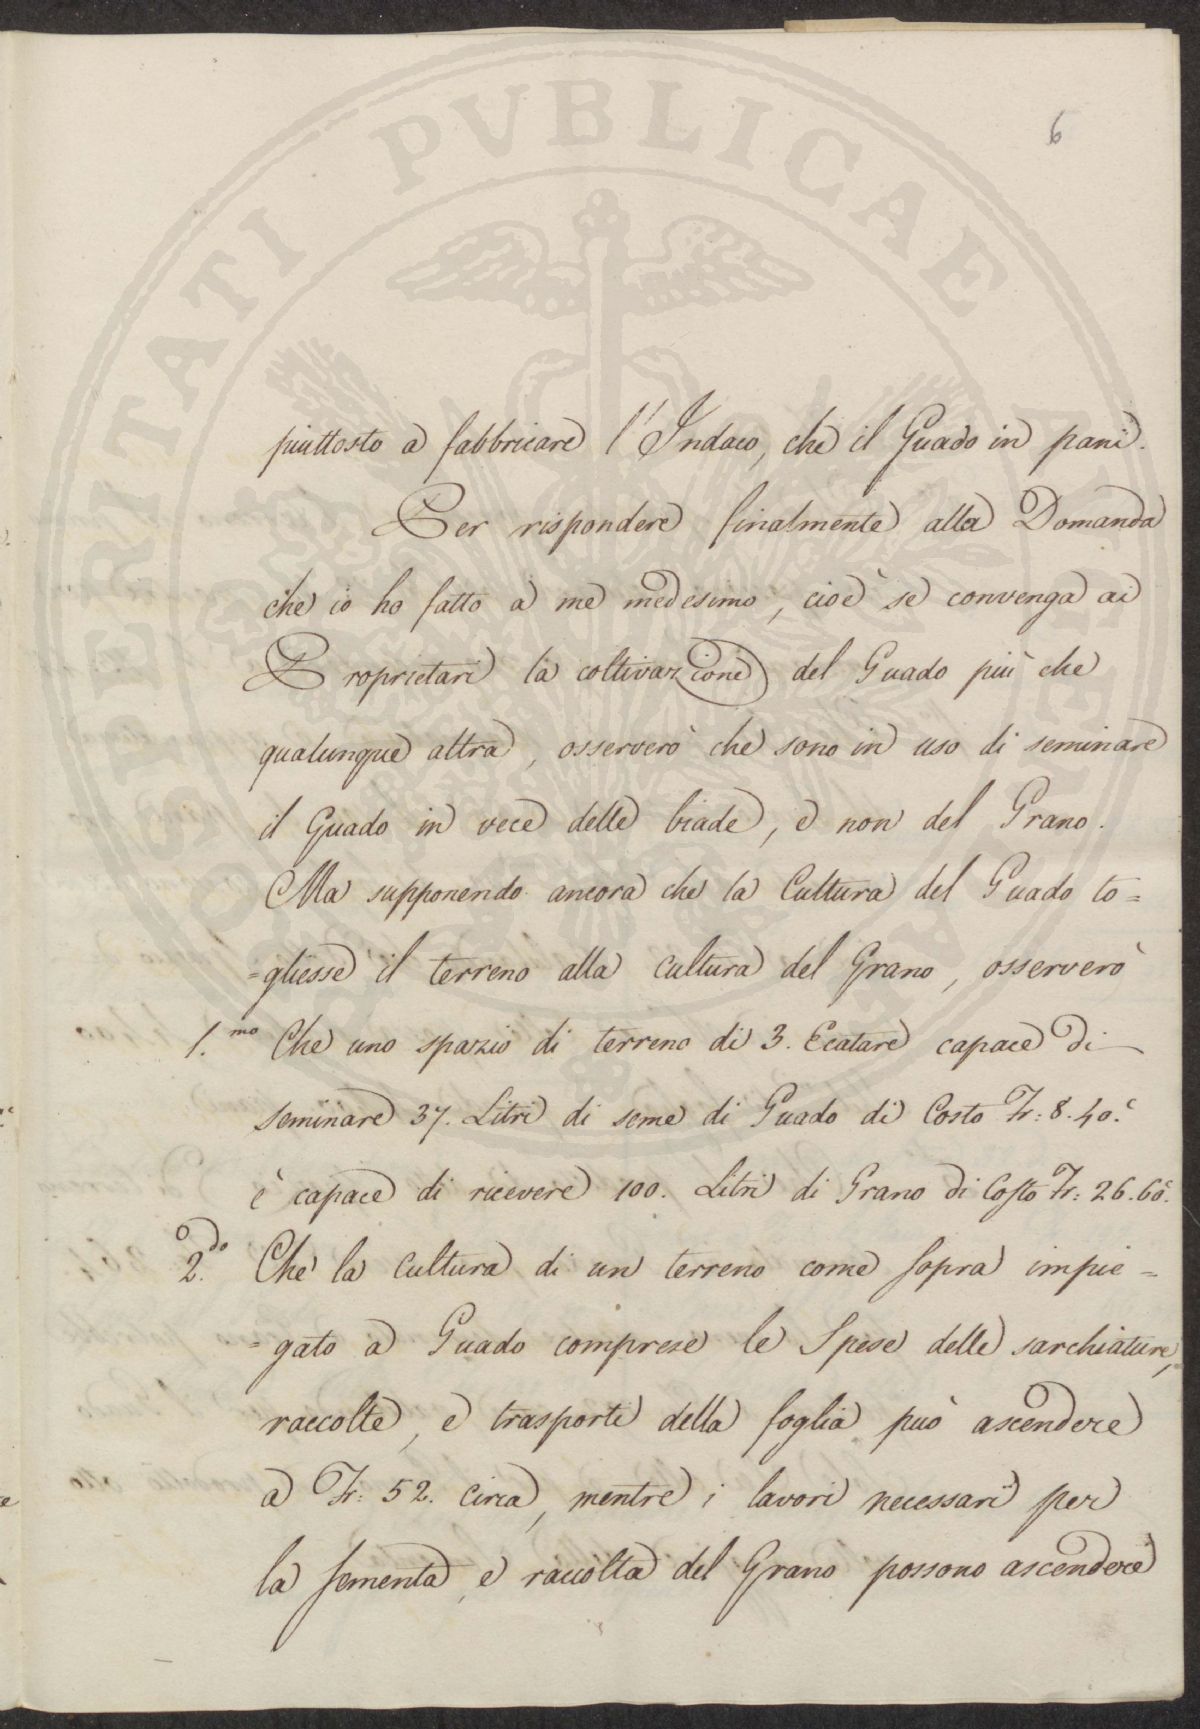 6
piuttosto a fabbricare l'Indaco, che il Guado in pani.
Per rispondere finalmente alla Domanda
che io ho fatto a me medesimo, cioè se convenga ai
Proprietari la coltivazione del Guado più che
qualunque altra, osserverò che sono in uso di seminare
il Guado in vece delle biade, e non del Grano.
Ma supponendo ancora che la Cultura del Guado to=
=gliesse il terreno alla cultura del Grano, osserverò
1.mo Che uno spazio di terreno di 3. Ecatare capace di
seminare 37. Litri di seme di Guado di Costo Fr: 8.40.c
è capace di ricevere 100. Litri di Grano di Costo Fr: 26.60.c
2.do Che la Cultura di un terreno come sopra impie=
=gato a Guado comprese le Spese delle sarchiature,
raccolte, e trasporti della foglia può ascendere
a Fr: 52. circa, mentre i lavori necessarj per
la sementa, e raccolta del Grano possono ascendere
PROSPERITATI PVBLICAE